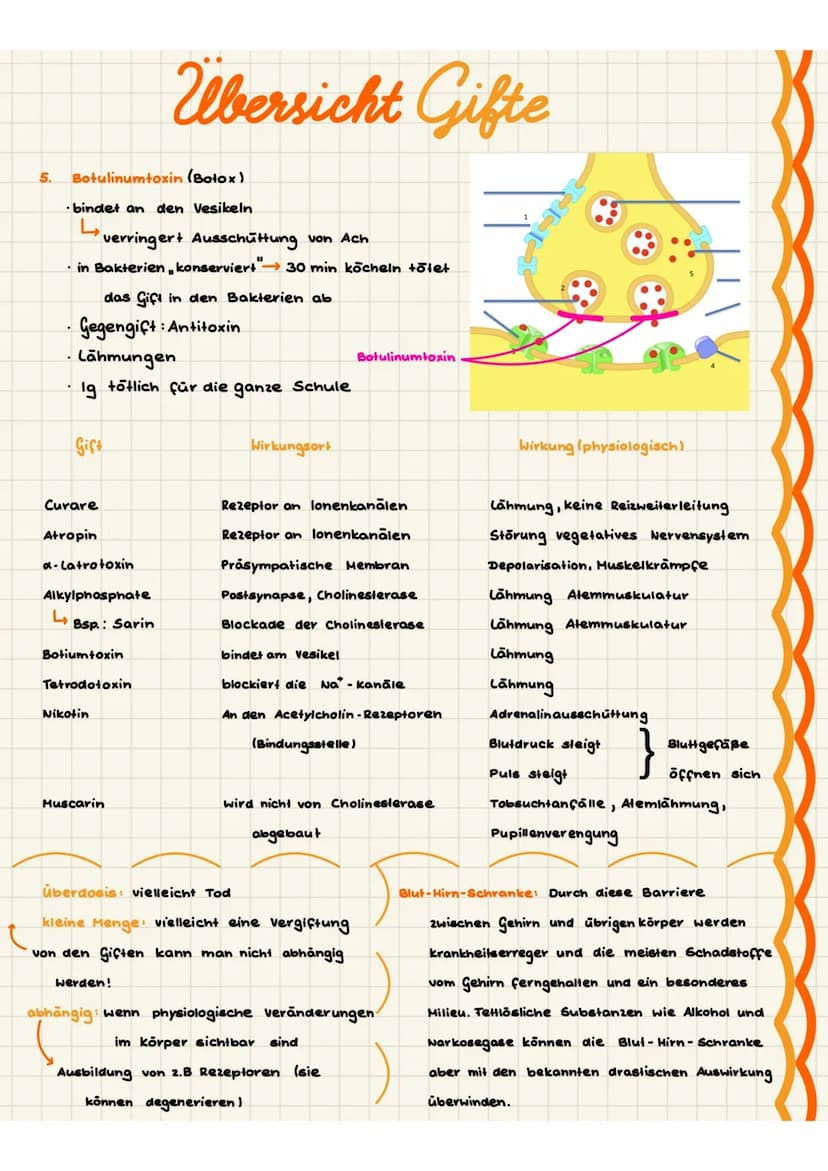 Übersicht Gifte
5. Botulinumtoxin (Botox)
· bindet an den Vesikeln
↳ verringert Ausschüttung von Ach
· in Bakterien „konserviert" → 30 min köcheln tötet
das Gift in den Bakterien ab
· Gegengift: Antitoxin
· Lähmungen
· 1g tötlich für die ganze Schule
1
2
5
3
4
Botulinumtoxin
Gift Wirkungsort Wirkung (physiologisch)
Curare Rezeptor an Ionenkanälen Lähmung, keine Reizweiterleitung
Atropin Rezeptor an Ionenkanälen Störung vegetatives Nervensystem
α-Latrotoxin Präsympatische Membran Depolarisation, Muskelkrämpfe
Alkylphosphate Postsynapse, Cholinesterase Lähmung Atemmuskulatur
↳ Bsp.: Sarin Blockade der Cholinesterase Lähmung Atemmuskulatur
Botiumtoxin bindet am Vesikel Lähmung
Tetrodotoxin blockiert die Na⁺-Kanäle Lähmung
Nikotin An den Acetylcholin-Rezeptoren Adrenalinausschüttung
(Bindungsstelle) Blutdruck steigt } Blutgefäße
Puls steigt öffnen sich
Muscarin wird nicht von Cholinesterase Tobsuchtanfälle, Atemlähmung,
abgebaut Pupillenverengung
Überdosis: vielleicht Tod
kleine Menge: vielleicht eine Vergiftung
von den Giften kann man nicht abhängig
werden!
abhängig: wenn physiologische Veränderungen
im Körper sichtbar sind
Ausbildung von z.B Rezeptoren (sie
können degenerieren)
Blut-Hirn-Schranke: Durch diese Barriere
zwischen Gehirn und übrigen Körper werden
Krankheitserreger und die meisten Schadstoffe
vom Gehirn ferngehalten und ein besonderes
Milieu. Tettlösliche Substanzen wie Alkohol und
Narkosegase können die Blut-Hirn-Schranke
aber mit den bekannten drastischen Auswirkung
überwinden.